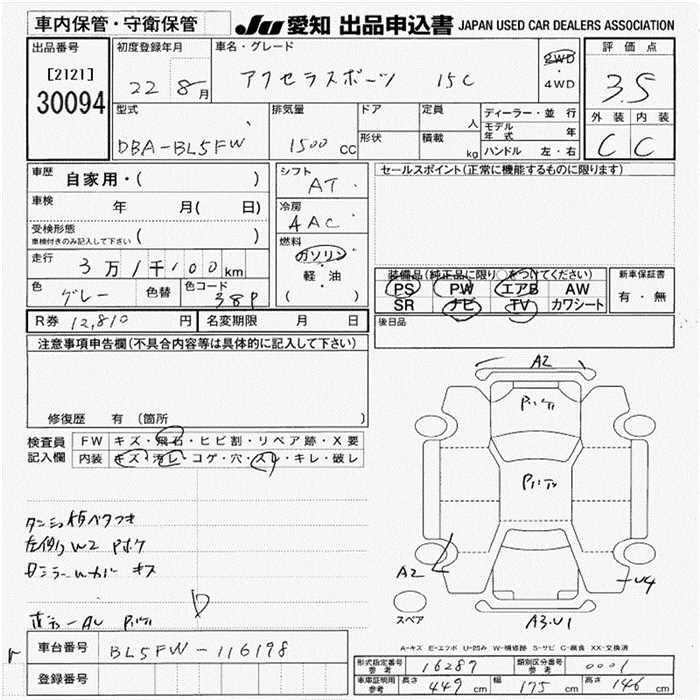 車内保管・守衛保管
JU 愛知 出品申込書 JAPAN USED CAR DEALERS ASSOCIATION
出品番号
[2121]
30094
初度登録年月
22 8月
車名・グレード
アクセラスポーツ 15C
2WD
4WD
評価点
3.5
外装 内装
C C
型式
DBA-BL5FW
排気量
1500 cc
ドア
形状
定員
人
積載
kg
ディーラー・並行
モデル年式 年
ハンドル 左・右
車歴 自家用・( )
車検 年 月( 日)
受検形態
車検付きのみ記入して下さい ( )
走行 3万1千100km
色 グレー 色替 色コード 38P
シフト
AT
冷房
AAC
燃料
ガソリン
・
軽・油
( )
セールスポイント(正常に機能するものに限ります)
装備品(純正品に限り○をつけてください)
PS PW エアB AW
SR ナビ TV カワシート
新車保証書
有・無
後日品
R券 12,810 円 名変期限 月 日
注意事項申告欄(不具合内容等は具体的に記入して下さい)
修復歴 有(箇所 )
検査員
記入欄
FW キズ・飛石・ヒビ割・リペア跡・X要
内装 キズ・汚レ・コゲ・穴・スレ・キレ・破レ
W2
キズ
A2
A2
A3.U1
U4
スペア
A-キズ E-エクボ U-凹み W-補修跡 S-サビ C-腐食 XX-交換済
車台番号 BL5FW-116198
登録番号
形式指定番号
参考
16287
類別区分番号
参考
0001
車庫証明用
参考
長さ 449 cm 幅 175 cm 高さ 146 cm